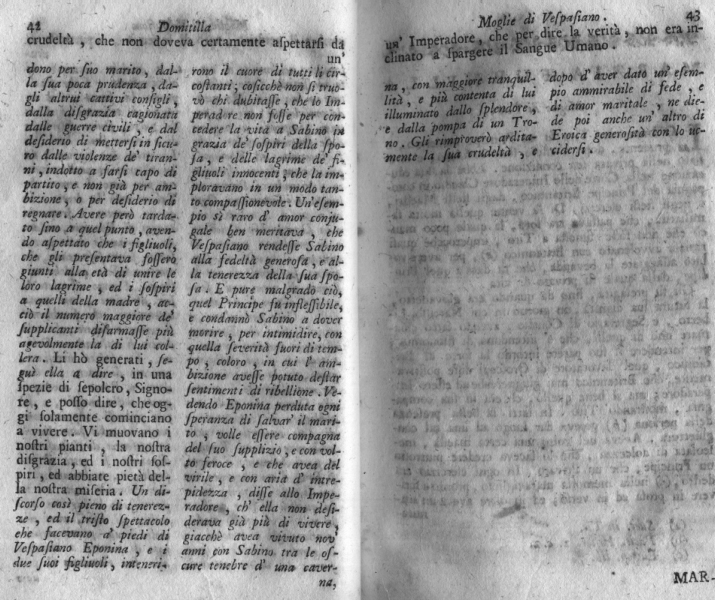 42 Domitilla
crudeltà, che non doveva certamente aspettarsi da
un'
dono per suo marito, dal-
la sua poca prudenza, da-
gli altrui cattivi consigli,
dalla disgrazia cagionata
dalle guerre civili, e dal
desiderio di mettersi in sicu-
ro dalle violenze de' tiran-
ni, indotto a farsi capo di
partito, e non già per am-
bizione, o per desiderio di
regnare. Avere però tarda-
to sino a quel punto, aven-
do aspettato che i figliuoli,
che gli presentava fossero
giunti alla età di unire le
loro lagrime, ed i sospiri
a quelli della madre, ac-
ciò il numero maggiore de'
supplicanti disarmasse più
agevolmente la di lui col-
lera. Li hò generati, se-
guì ella a dire, in una
spezie di sepolcro, Signo-
re, e posso dire, che og-
gi solamente cominciano
a vivere. Vi muovano i
nostri pianti, la nostra
disgrazia, ed i nostri sos-
piri, ed abbiate pietà del-
la nostra miseria. Un di-
scorso così pieno di tenerez-
ze, ed il tristo spettacolo
che facevano a' piedi di
Vespasiano Eponina, e i
due suoi figliuoli, inteneri-
rono il cuore di tutti li cir-
costanti; cosicchè non si truo-
vò chi dubitasse, che lo Im-
peradore non fosse per con-
cedere la vita a Sabino in
grazia de' sospiri della spo-
sa, e delle lagrime de' fi-
gliuoli innocenti, che la im-
ploravano in un modo tan-
to compassionevole. Un' esem-
pio sì raro d' amor conju-
gale ben meritava, che
Vespasiano rendesse Sabino
alla fedeltà generosa, e al-
la tenerezza della sua spo-
sa. E pure malgrado ciò,
quel Principe fu inflessibile,
e condannò Sabino a dover
morire, per intimidire, con
quella severità fuori di tem-
po, coloro, in cui l' am-
bizione avesse potuto destar
sentimenti di ribellione. Ve-
dendo Eponina perduta ogni
speranza di salvar' il mari-
to, volle essere compagna
del suo supplizio, e con vol-
to feroce, e che avea del
virile, e con aria d' intre-
pidezza, disse allo Impe-
radore, ch' ella non desi-
derava già più di vivere,
giacchè avea vivuto nov'
anni con Sabino tra le os-
cure tenebre d' una caver-
na,
Moglie di Vespasiano. 43
un' Imperadore, che per dire la verità, non era in-
clinato a spargere il Sangue Umano.
na, con maggiore tranquil-
lità, e più contenta di lui
illuminato dallo splendore,
e dalla pompa di un Tro-
no. Gli rimproverò ardita-
mente la sua crudeltà, e
dopo d' aver dato un' esem-
pio ammirabile di fede, e
di amor maritale, ne die-
de poi anche un' altro di
Eroica generosità con lo uc-
cidersi.
MAR-